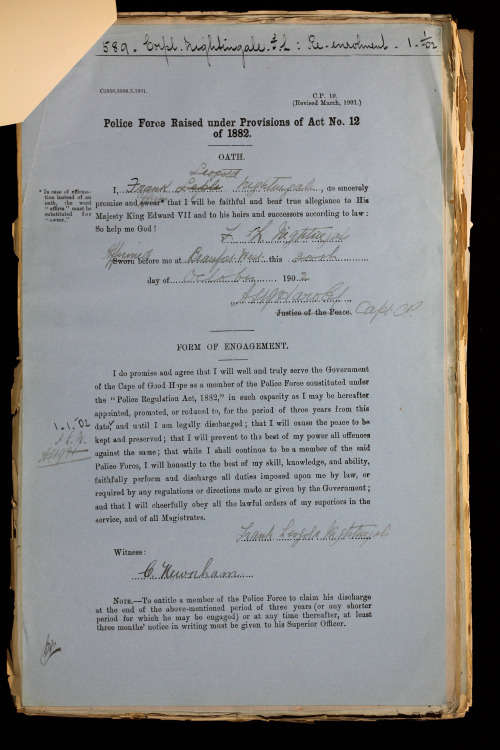 589. Corpl. Nightingale. F. L: Re-enrolment - 1-1-02
C1898.5000.5.1901.
C.P. 19.
(Revised March, 1901.)
Police Force Raised under Provisions of Act No. 12
of 1882.
OATH.
Leopold
I, Frank Nightingale, do sincerely
promise and swear* that I will be faithful and bear true allegiance to His
Majesty King Edward VII and to his heirs and successors according to law:
So help me God!
* In case of affirma-
tion instead of an
oath, the word
"affirm" must be
substituted for
"swear."
F. L. Nightingale
Affirmed
Sworn before me at Beaufort West this
day of October 1902
Justice of the Peace. Capt CP.
FORM OF ENGAGEMENT.
I do promise and agree that I will well and truly serve the Government
of the Cape of Good Hope as a member of the Police Force constituted under
the "Police Regulation Act, 1882," in such capacity as I may be hereafter
appointed, promoted, or reduced to, for the period of three years from this
1-1-02
date, and until I am legally discharged; that I will cause the peace to be
kept and preserved; that I will prevent to the best of my power all offences
against the same; that while I shall continue to be a member of the said
Police Force, I will honestly to the best of my skill, knowledge, and ability,
faithfully perform and discharge all duties imposed upon me by law, or
required by any regulations or directions made or given by the Government;
and that I will cheerfully obey all the lawful orders of my superiors in the
service, and of all Magistrates.
Frank Leopold Nightingale
Witness:
C. Newnham
NOTE.—To entitle a member of the Police Force to claim his discharge
at the end of the above-mentioned period of three years (or any shorter
period for which he may be engaged) or at any time thereafter, at least
three months' notice in writing must be given to his Superior Officer.